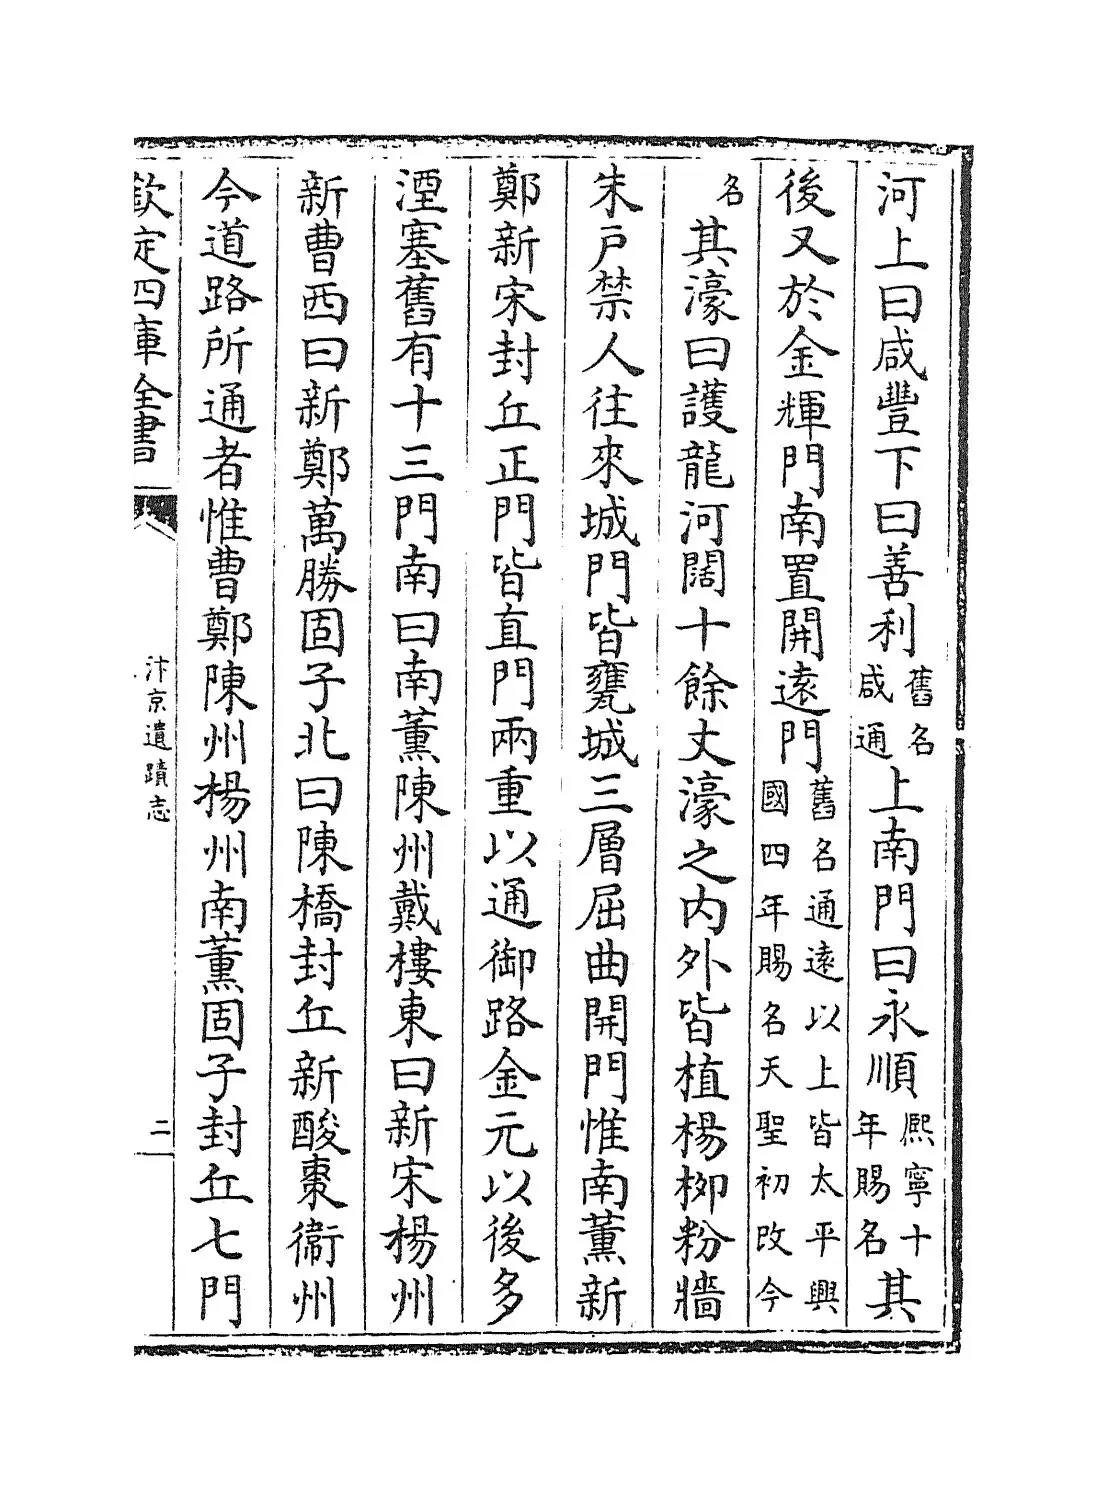 河上曰咸豐下曰善利舊名咸通上南門曰永順熈寧十年賜名其
後又於金輝門南置開遠門舊名通遠以上皆太平興國四年賜名天聖初改今
名其濠曰護龍河闊十餘丈濠之内外皆植楊栁粉牆
朱戶禁人往來城門皆甕城三層屈曲開門惟南薫新
鄭新宋封丘正門皆直門兩重以通御路金元以後多
湮塞舊有十三門南曰南薫陳州戴樓東曰新宋楊州
新曹西曰新鄭萬勝固子北曰陳橋封丘新酸棗衞州
今道路所通者惟曹鄭陳州楊州南薫固子封丘七門
欽定四庫全書
汴京遺蹟志
二